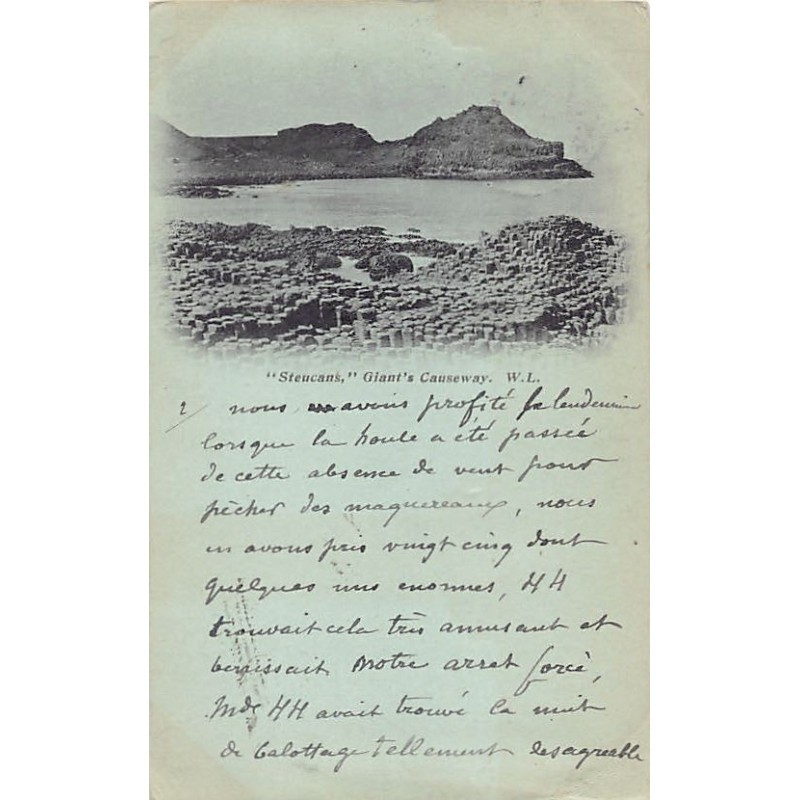 "Steucans," Giant's Causeway. W.L.
2/ nous avons profité le lendemain
lorsque la houle a été passée
de cette absence de vent pour
pêcher des maquereaux, nous
en avons pris vingt cinq dont
quelques uns enormes, H H
trouvait cela très amusant et
benissait Notre arret forcé,
Mde HH avait trouvé la nuit
de balottage tellement desagreable